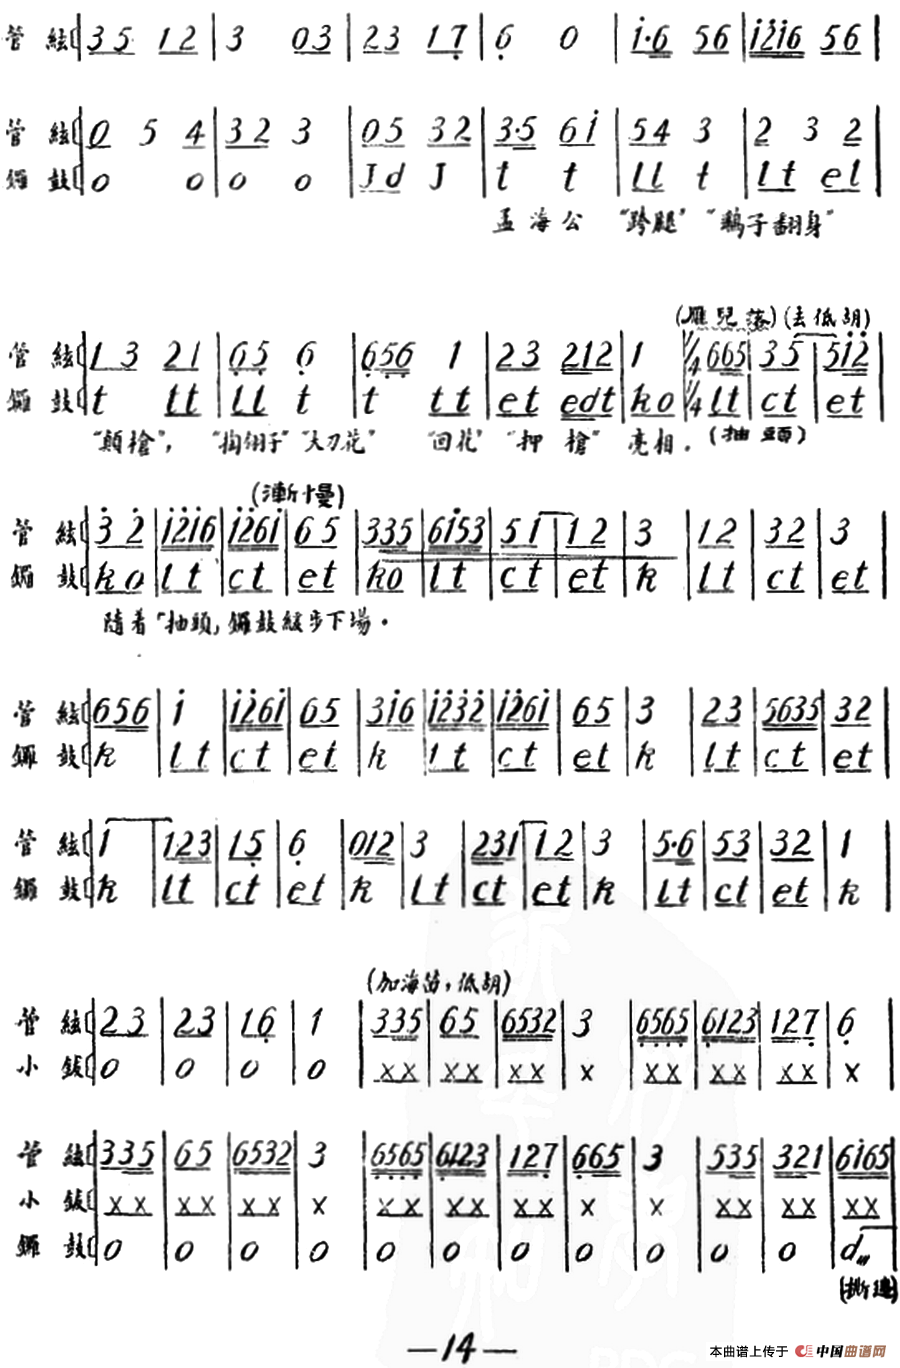 管 絃 3 5 1 2 | 3 0 3 | 2 3 1 7 | 6 0 | i·6 5 6 | i 2 i 6 5 6 |
管 絃 0 5 4 | 3 2 3 | 0 5 3 2 | 3·5 6 i | 5 4 3 | 2 3 2 |
鑼 鼓 0 0 | 0 0 | J d J | t t | l l t | l t e l |
孟海公 "跨腿" "鷂子翻身"
(雁兒落) (去低胡)
管 絃 1 3 2 1 | 6 5 6 | 6 5 6 1 | 2 3 2 1 2 | 1 | 1/4 6 6 5 | 3 5 | 5 i 2 |
鑼 鼓 t t t | l l t | t t t | e t e d t | k o | 1/4 l t | c t | e t |
"顛槍", "掏翎子" "大刀花" "回花" "押槍" 亮相. (抽頭)
(漸慢)
管 絃 3 2 | i 2 i 6 | i 2 6 i | 6 5 | 3 3 5 | 6 i 5 3 | 5 1 | 1 2 | 3 | 1 2 | 3 2 | 3 |
鑼 鼓 k o | l t | c t | e t | k o | l t | c t | e t | k | l t | c t | e t |
隨着「抽頭」鑼鼓緩步下場.
管 絃 6 5 6 | i | i 2 6 i | 6 5 | 3 i 6 | i 2 3 2 | i 2 6 i | 6 5 | 3 | 2 3 | 5 6 3 5 | 3 2 |
鑼 鼓 k | l t | c t | e t | k | l t | c t | e t | k | l t | c t | e t |
管 絃 1 | 1 2 3 | 1 5 | 6 | 0 1 2 | 3 | 2 3 1 | 1 2 | 3 | 5·6 | 5 3 | 3 2 | 1 |
鑼 鼓 k | l t | c t | e t | k | l t | c t | e t | k | l t | c t | e t | k |
(加海笛,低胡)
管 絃 2 3 | 2 3 | 1 6 | 1 | 3 3 5 | 6 5 | 6 5 3 2 | 3 | 6 5 6 5 | 6 1 2 3 | 1 2 7 | 6 |
小 鈸 0 | 0 | 0 | 0 | x x | x x | x x | x | x x | x x | x x | x |
管 絃 3 3 5 | 6 5 | 6 5 3 2 | 3 | 6 5 6 5 | 6 1 2 3 | 1 2 7 | 6 6 5 | 3 | 5 3 5 | 3 2 1 | 6 i 6 5 |
小 鈸 x x | x x | x x | x | x x | x x | x x | x | x | x x | x x | x x |
鑼 鼓 0 | 0 | 0 | 0 | 0 | 0 | 0 | 0 | 0 | 0 | 0 | d |
(撕邊)
—14—
本曲谱上传于 中国曲谱网